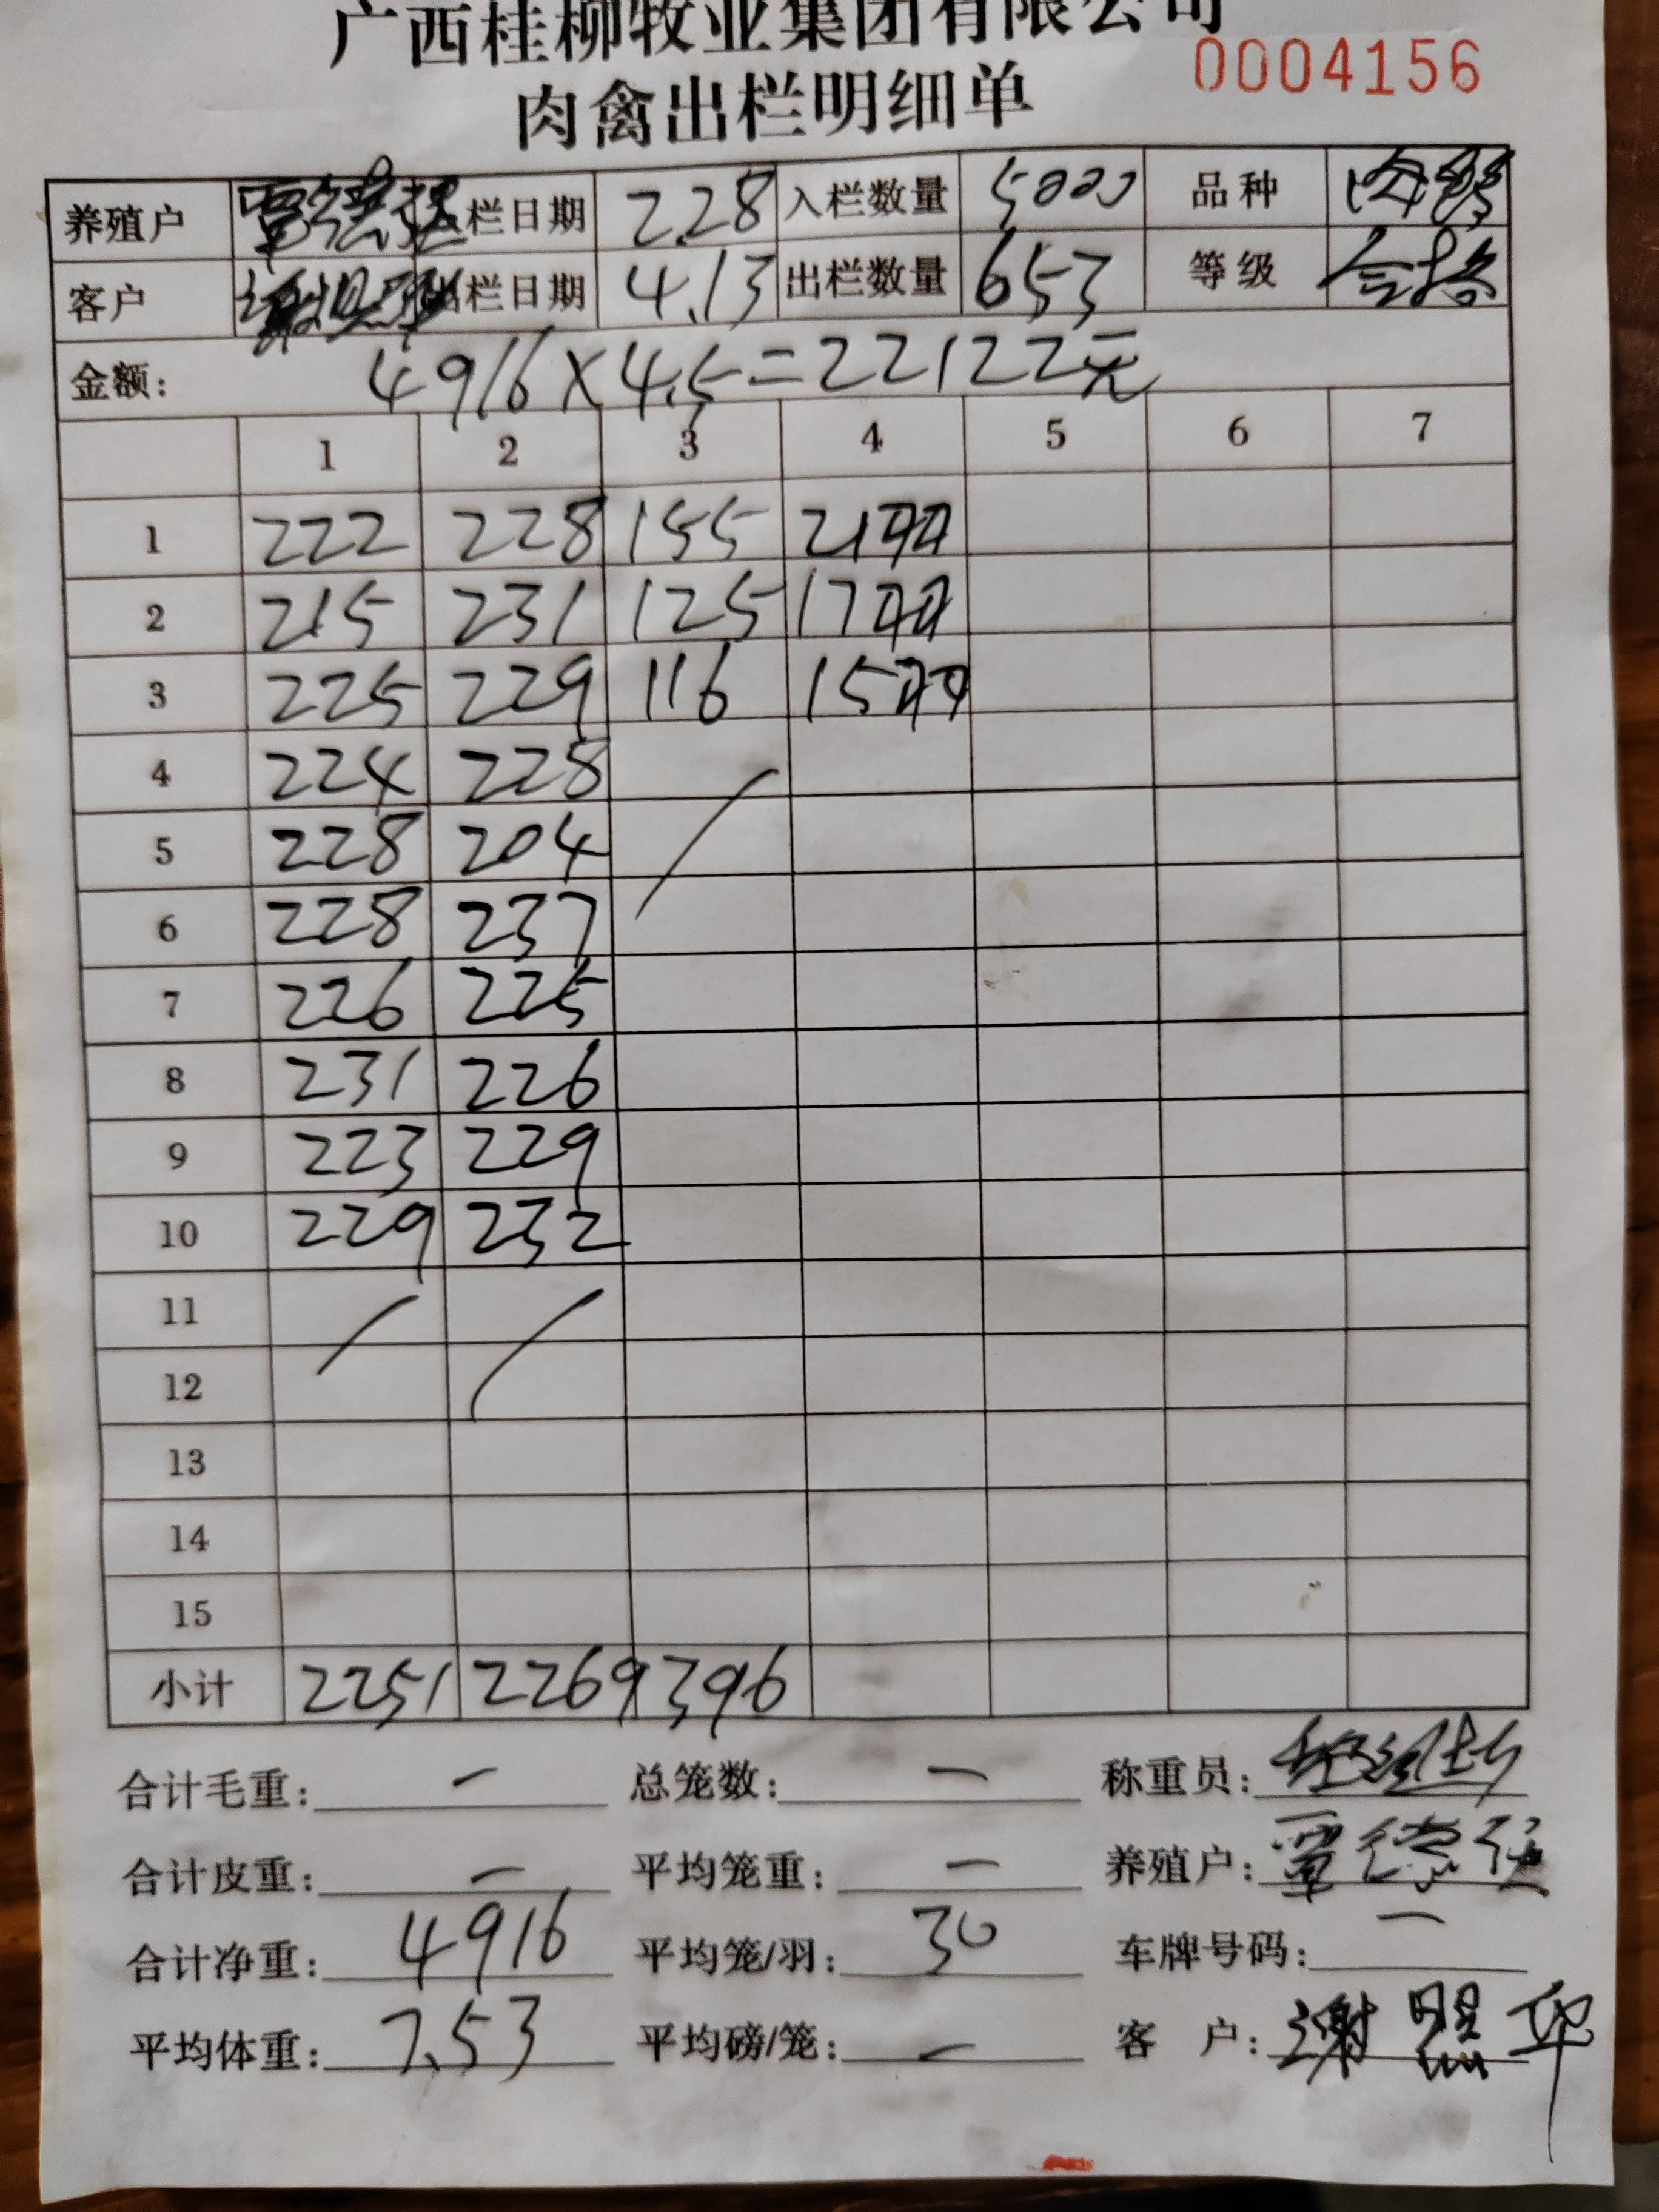 广西桂柳牧业集团有限公司
0004156
肉禽出栏明细单
养殖户 栏日期 2.28 入栏数量 5000 品种 肉鸭
客户 出栏日期 4.13 出栏数量 653 等级 合格
金额: 4916×4.5=22122元
1 2 3 4 5 6 7
1 222 228 155 21
2 215 231 125 17
3 225 229 116 15
4 224 228
5 228 204
6 228 237
7 226 225
8 231 226
9 223 229
10 229 232
11
12
13
14
15
小计 2251 2269 396
合计毛重: 一 总笼数: 一 称重员:
合计皮重: 一 平均笼重: 一 养殖户: 覃德强
合计净重: 4916 平均笼/羽: 30 车牌号码: 一
平均体重: 7.53 平均磅/笼: 一 客 户: 谢照华